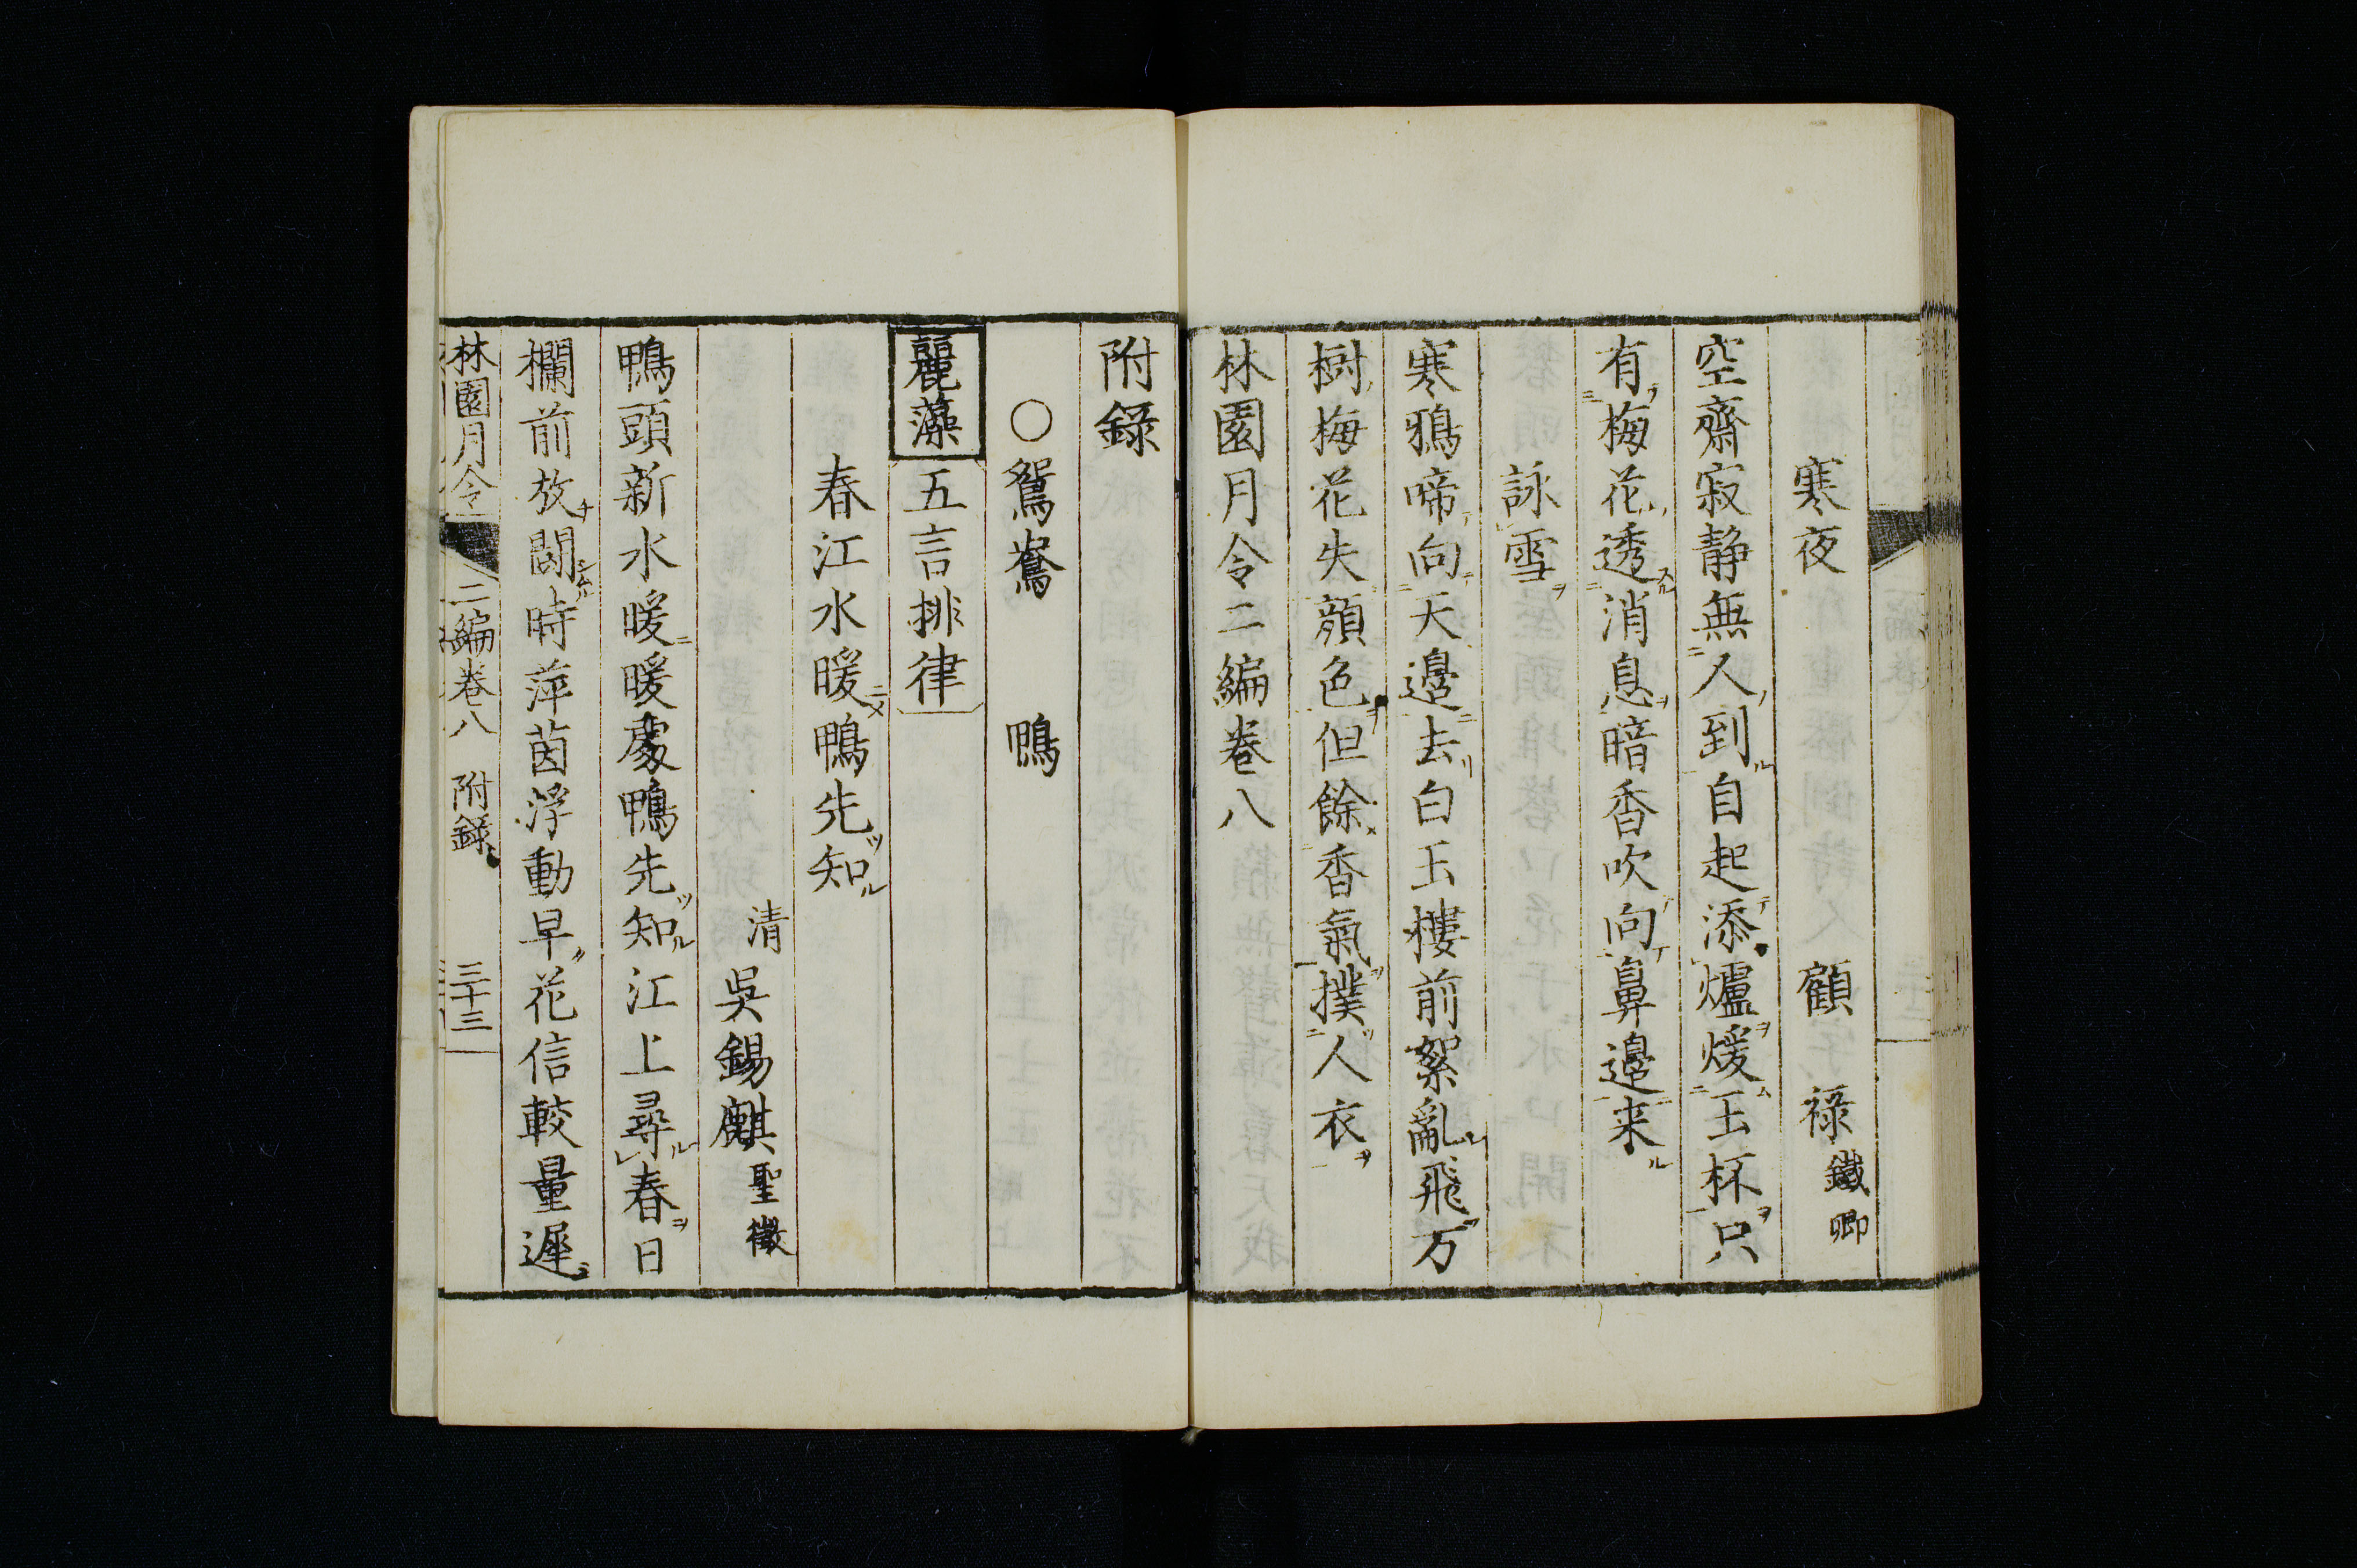 寒夜　顧祿鐵卿
空齋寂静無人到自起添爐煖玉杯只
有梅花透消息暗香吹向鼻邊来
詠雪
寒鴉啼向天邊去白玉樓前絮亂飛万
樹梅花失顔色但餘香氣撲人衣
林園月令二編巻八
附録
〇鴛鴦　鴨
麗藻　五言排律
春江水暖鴨先知
清　吳錫麒聖徴
鴨頭新水暖暖處鴨先知江上尋春日
欄前放鬭時萍茵浮動早花信較量遲
林園月令　二編巻八　附録　三十三